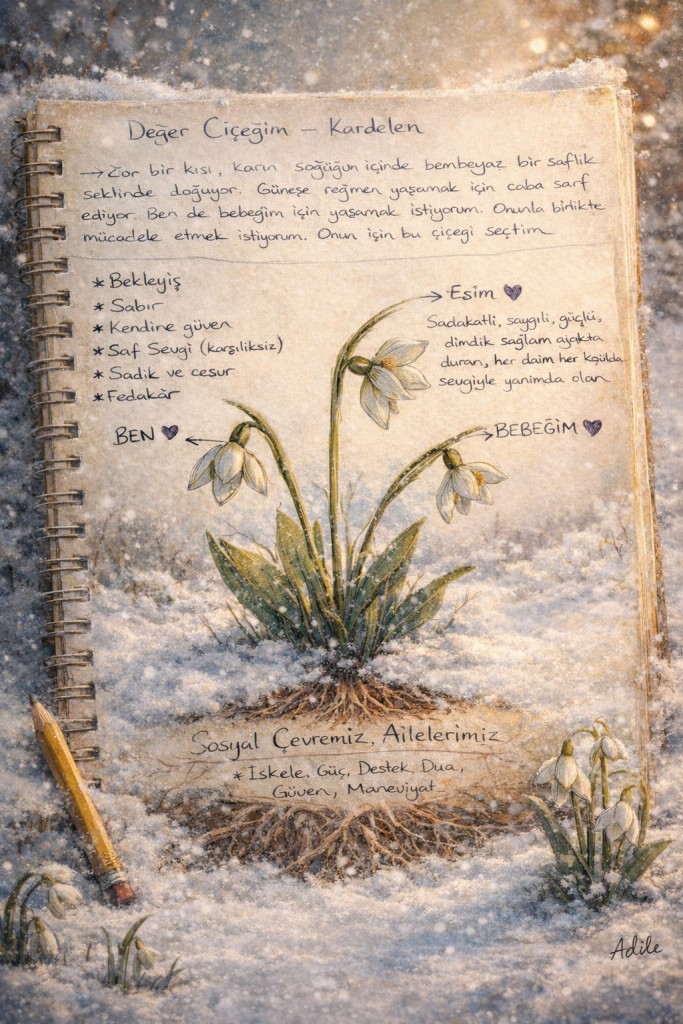 Değer Çiçeğim – Kardelen
→ Zor bir kısı, karın soğüğun içinde bembeyaz bir saflik
seklinde doğuyor. Güneşe reğmen yaşamak için caba sarf
ediyor. Ben de bebeğim için yaşamak istiyorum. Onunla birlikte
mücadele etmek istiyorum. Onun için bu çiçeği seçtim
* Bekleyiş
* Sabır
* Kendine güven
* Saf Sevgi (karşıliksiz)
* Sadik ve cesur
* Fedakâr
→ Esim 🖤
Sadakatli, saygılı, güçlü,
dimdik sağlam ajakta
duran, her daim her koşulda
sevgiyle yanimda olan
BEN 🖤 ←
→ BEBEĞİM 🖤
Sosyal Çevremiz, Ailelerimiz
* İskele, Güç, Destek, Dua,
Güven, Maneviyat
Adile